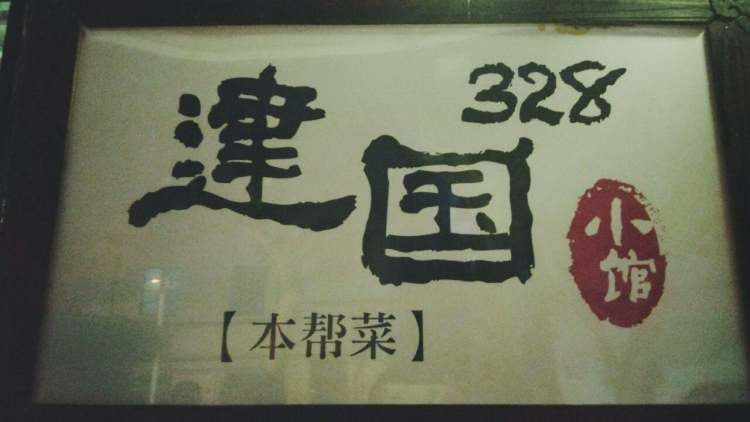 建国 328
小馆
【本帮菜】